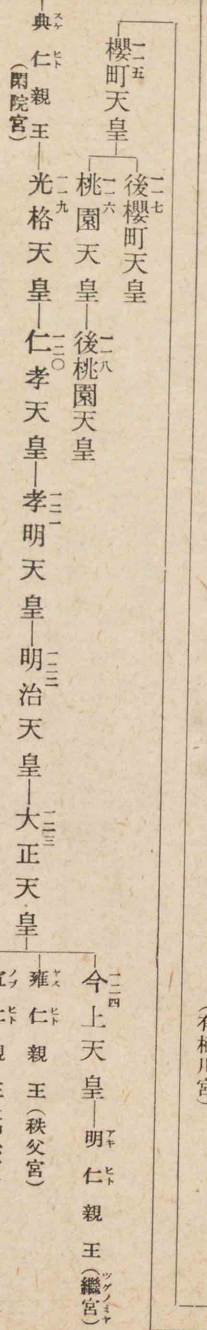 (有栖川宮)
一一五
櫻町天皇
一一七
後櫻町天皇
一一六
桃園天皇
一一八
後桃園天皇
典仁親王
スケヒト
(閑院宮)
一一九
光格天皇
一二〇
仁孝天皇
一二一
孝明天皇
一二二
明治天皇
一二三
大正天皇
一二四
今上天皇
明仁親王(繼宮)
アキヒト
ツグノミヤ
雍仁親王(秩父宮)
ヤスヒト